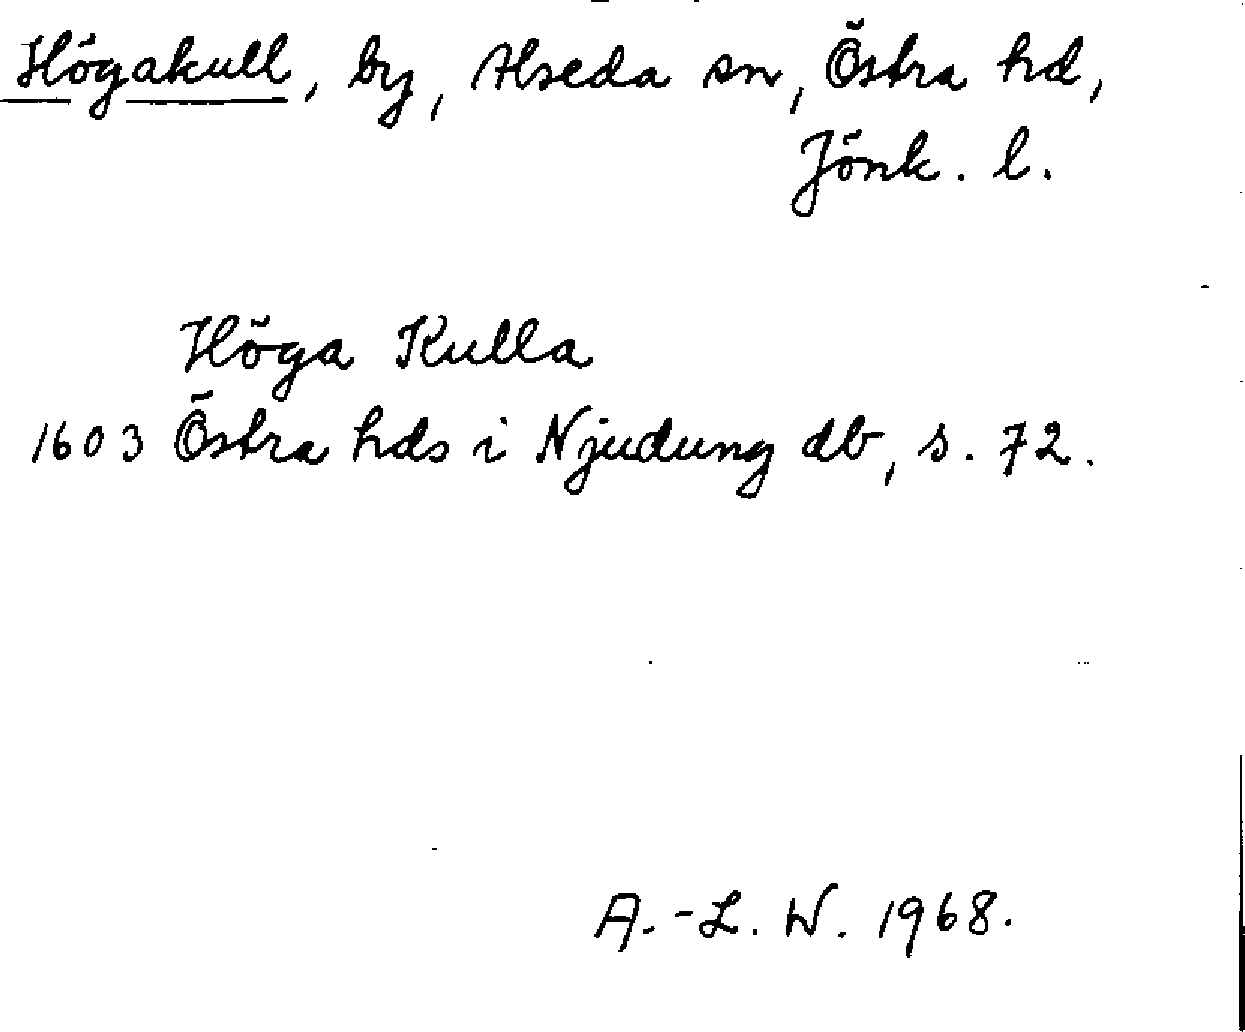 Högakull, by, Alseda sn, Östra hd,
Jönk. l.
Höga Kulla
1603 Östra hds i Njudung db, s. 72.
A.-L. W. 1968.